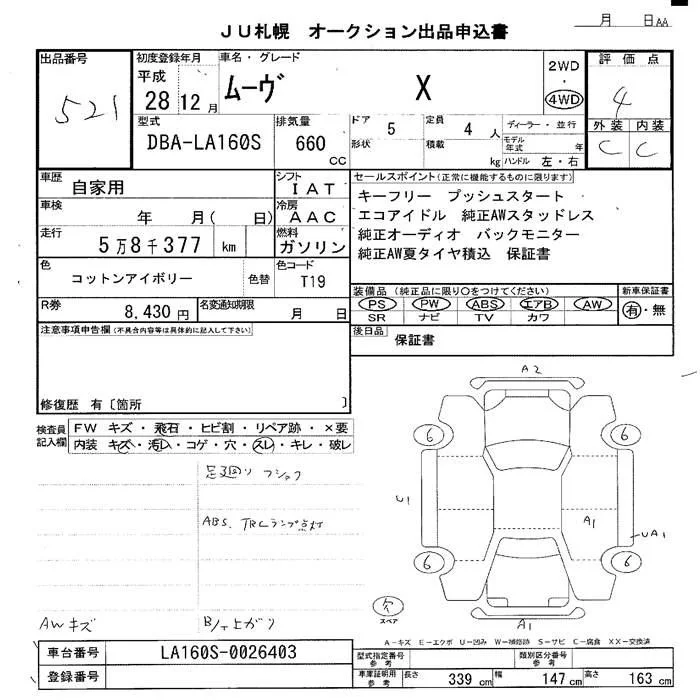 月 日AA
JU札幌 オークション出品申込書
出品番号 初度登録年月 車名・グレード 2WD ・ 4WD 評価点
521 平成 28 12月 ムーヴ X 4
型式 DBA-LA160S 排気量 660 CC
ドア 5 定員 4 人 ディーラー・並行 外装 内装
形状 積載 kg モデル年式 年 ハンドル 左・右 C C
車歴 自家用 シフト IAT セールスポイント(正常に機能するものに限ります)
車検 年 月( 日) 冷房 AAC キーフリー プッシュスタート
走行 5万8千377 km 燃料 ガソリン エコアイドル 純正AWスタッドレス
純正オーディオ バックモニター
純正AW夏タイヤ積込 保証書
色 コットンアイボリー 色替 色コード T19
装備品(純正品に限り○をつけてください) 新車保証書
PS PW ABS エアB AW 有・無
SR ナビ TV カワ
R券 8,430円 名変通知期限 月 日
後日品 保証書
注意事項申告欄(不具合内容等は具体的に記入して下さい)
修復歴 有〔箇所 〕
検査員記入欄 FW キズ・飛石・ヒビ割・リペア跡・×要
内装 キズ・汚レ・コゲ・穴・スレ・キレ・破レ
足廻り フショク
ABS、TRCランプ点灯
AWキズ
A2
6 6
U1 A1 UA1
6 6
スペア
A1
A-キズ E-エクボ U-凹み W-補修跡 S-サビ C-腐食 XX-交換済
車台番号 LA160S-0026403
登録番号
型式指定番号 参考 類別区分番号 参考
車庫証明用 参考 長さ 339 cm 幅 147 cm 高さ 163 cm